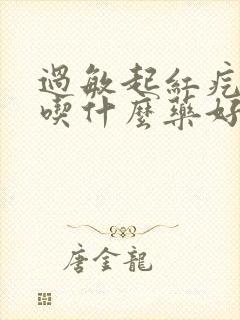 過敏起紅疙
喫什麼藥好
唐金龍